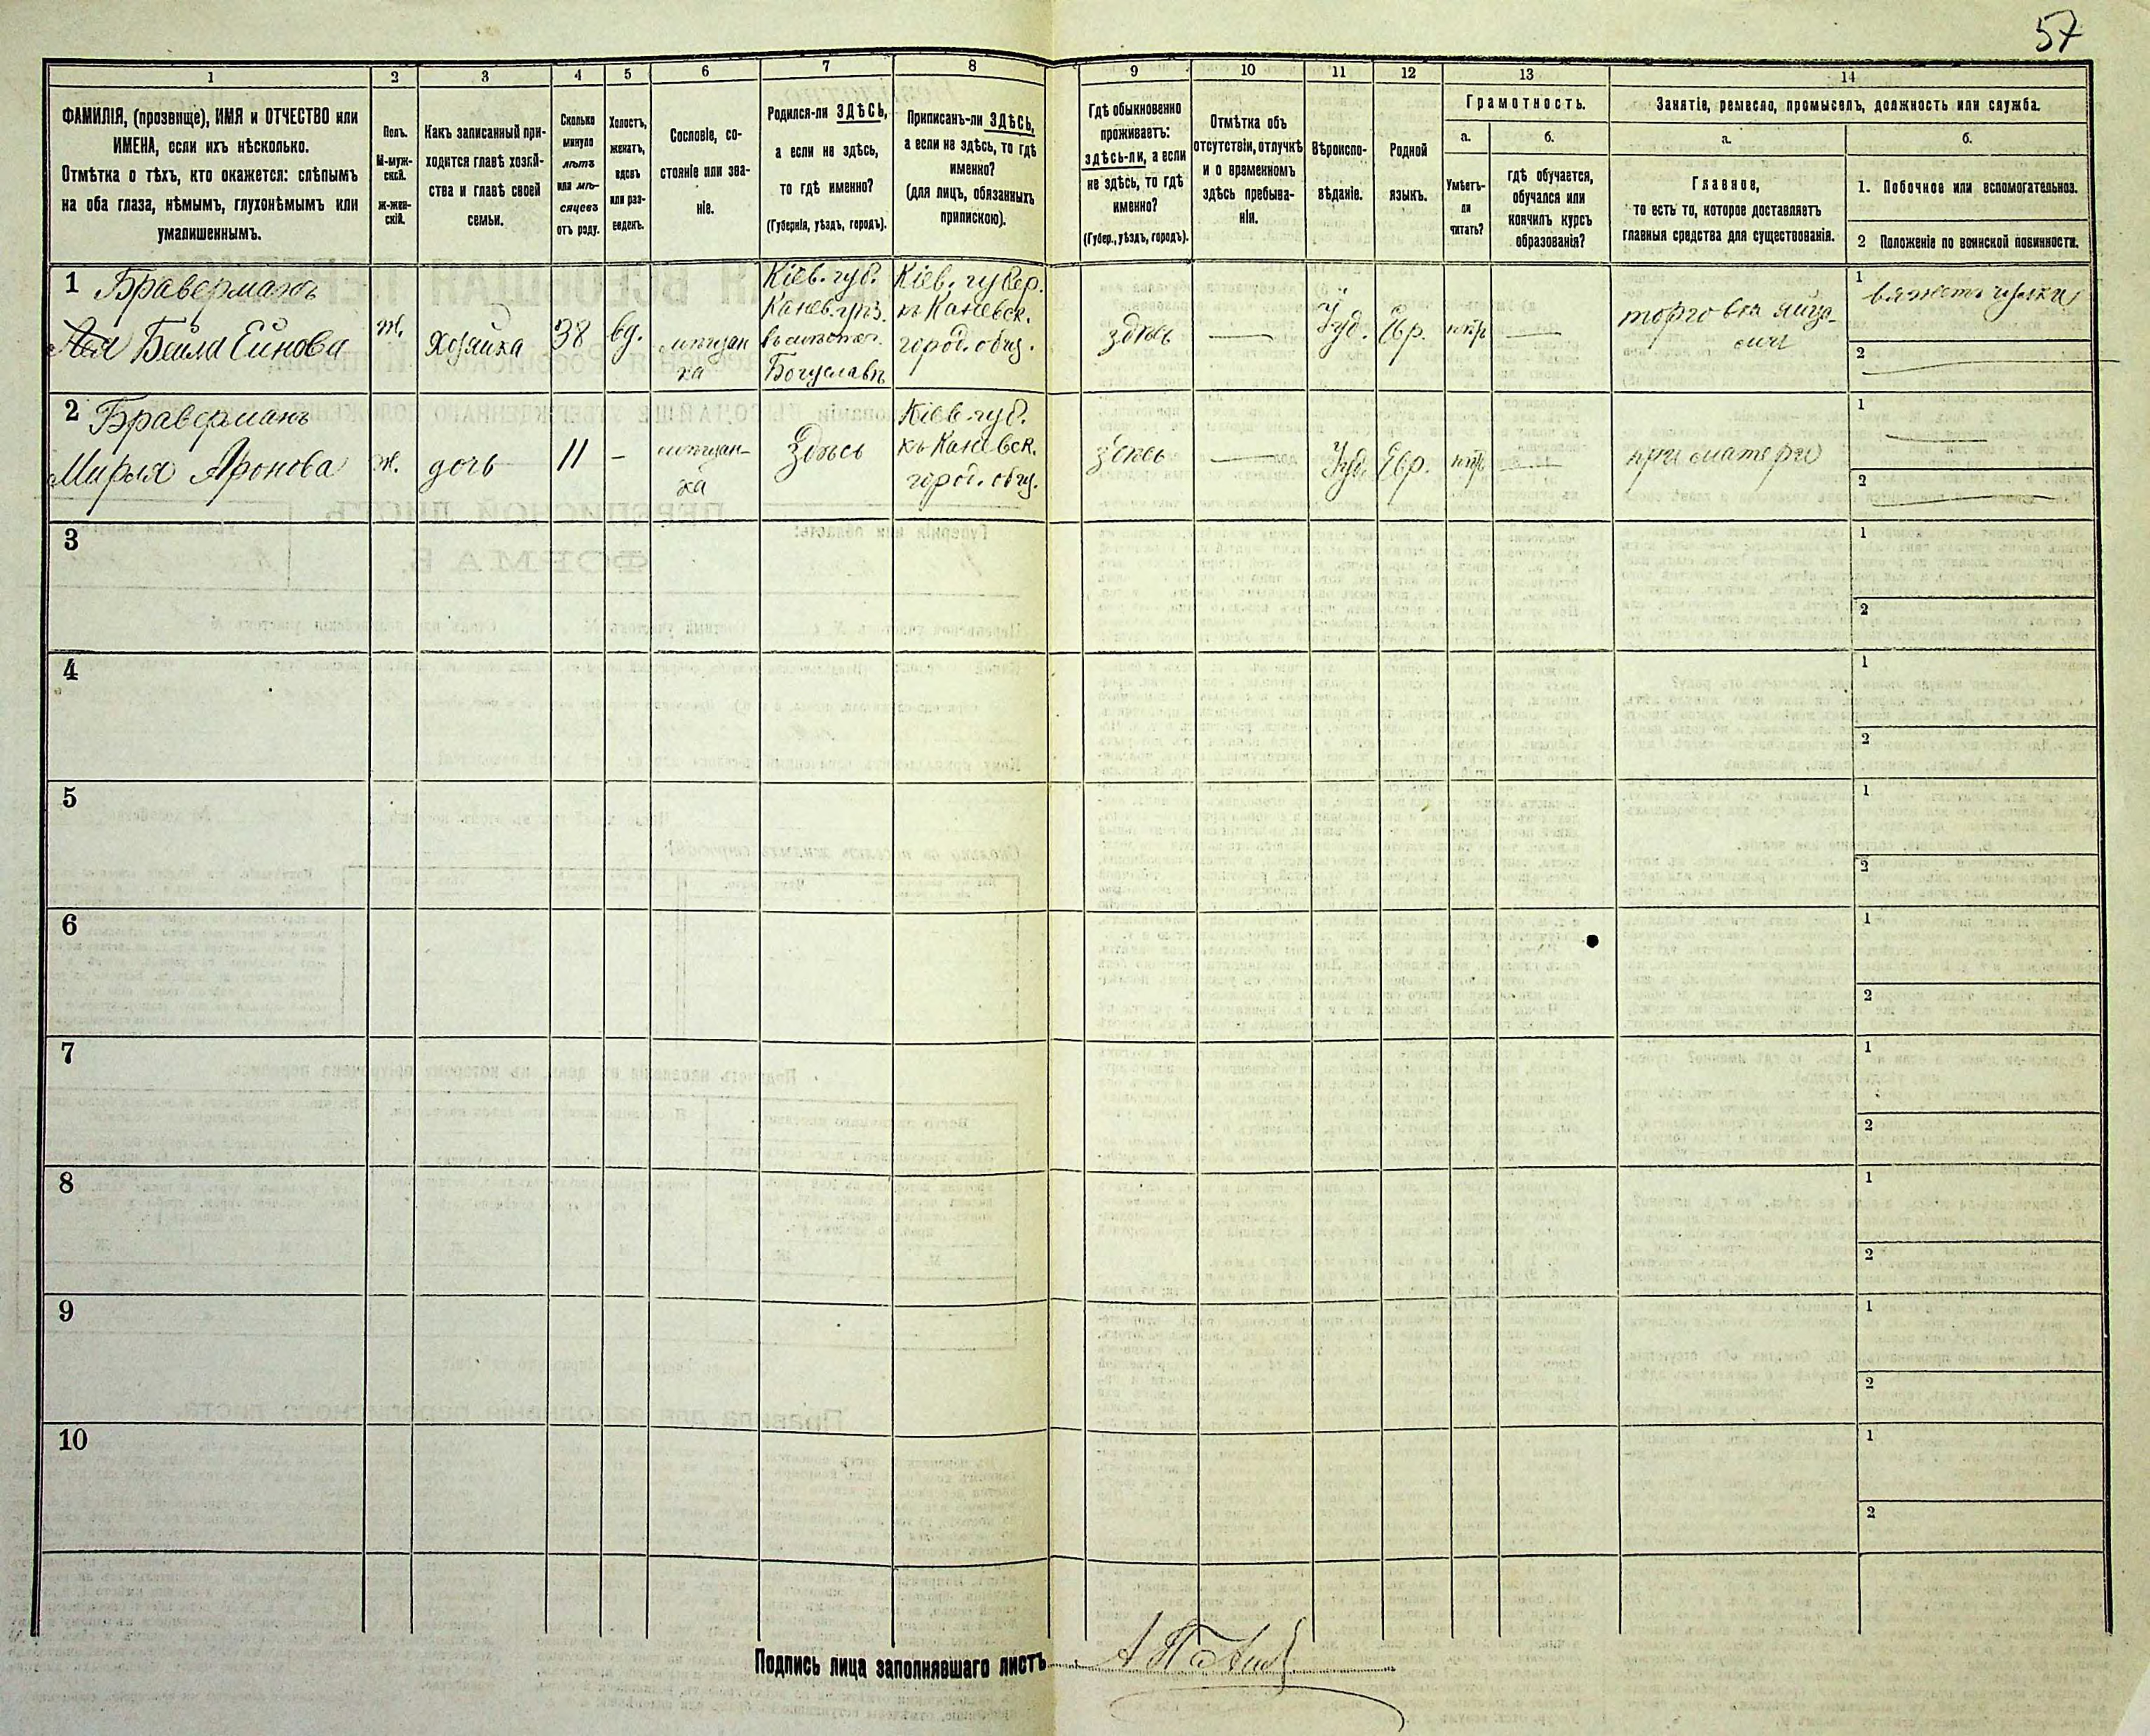 57
1
2
3
4
5
6
7
8
9
10
11
12
13
14
ФАМИЛІЯ, (прозвище), ИМЯ и ОТЧЕСТВО или
ИМЕНА, если ихъ нѣсколько.
Отмѣтка о тѣхъ, кто окажется: слѣпымъ
на оба глаза, нѣмымъ, глухонѣмымъ или
умалишеннымъ.
Полъ.
М-муж-
ской.
Ж-жен-
скій.
Какъ записанный при-
ходится главѣ хозяй-
ства и главѣ своей
семьи.
Сколько
минуло
лѣтъ
или мѣ-
сяцевъ
отъ роду.
Холостъ,
женатъ,
вдовъ
или раз-
веденъ.
Сословіе, со-
стояніе или зва-
ніе.
Родился-ли ЗДѢСЬ,
а если не здѣсь,
то гдѣ именно?
(Губернія, уѣздъ, городъ).
Приписанъ-ли ЗДѢСЬ,
а если не здѣсь, то гдѣ
именно?
(для лицъ, обязанныхъ
припискою).
Гдѣ обыкновенно
проживаетъ:
здѣсь-ли, а если
не здѣсь, то гдѣ
именно?
(Губер., уѣздъ, городъ).
Отмѣтка объ
отсутствіи, отлучкѣ
и о временномъ
здѣсь пребыва-
ніи.
Вѣроиспо-
вѣданіе.
Родной
языкъ.
Грамотность.
а.
Умѣетъ-
ли
читать?
б.
гдѣ обучается,
обучался или
кончилъ курсъ
образованія?
Занятіе, ремесло, промыселъ, должность или служба.
а.
Главное,
то есть то, которое доставляетъ
главныя средства для существованія.
б.
1. Побочное или вспомогательное.
2 Положеніе по воинской повинности.
1 Браверманъ
Бейла Ейнова
ж.
хозяйка
38
вд.
мѣщан
ка
Кіев. губ.
Канев. уѣз.
Богуславѣ
Кіев. губер.
къ Каневск.
город. общ.
здѣсь
—
Іуд.
Евр.
—
торговля яйца-
ми
1 вяжетъ чулки
2
2 Браверманъ
Мирля Аронова
ж.
дочь
11
-
мѣщан-
ка
Здѣсь
Кіев. губ.
къ Каневск.
город. общ.
здѣсь
—
Іуд.
Евр.
—
при матери
1
2
3
1
2
4
1
2
5
1
2
6
1
2
7
1
2
8
1
2
9
1
2
10
1
2
Подпись лица заполнявшаго листъ